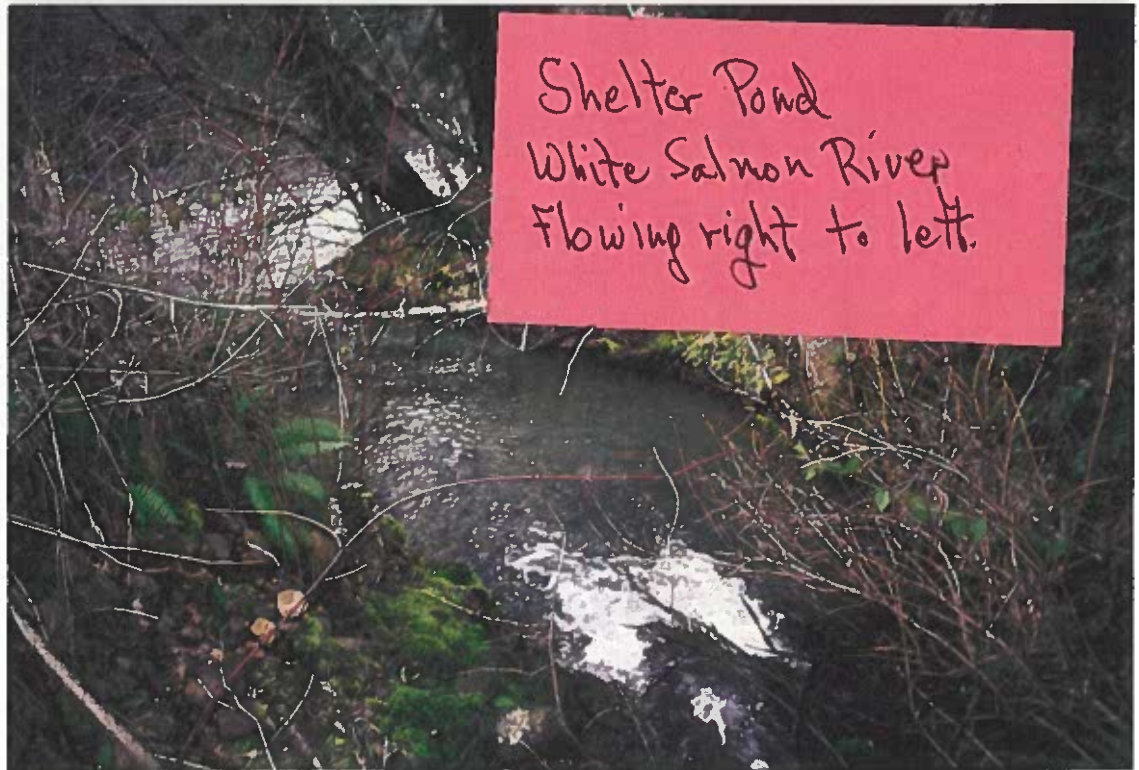 Shelter Pond
White Salmon River
Flowing right to left.